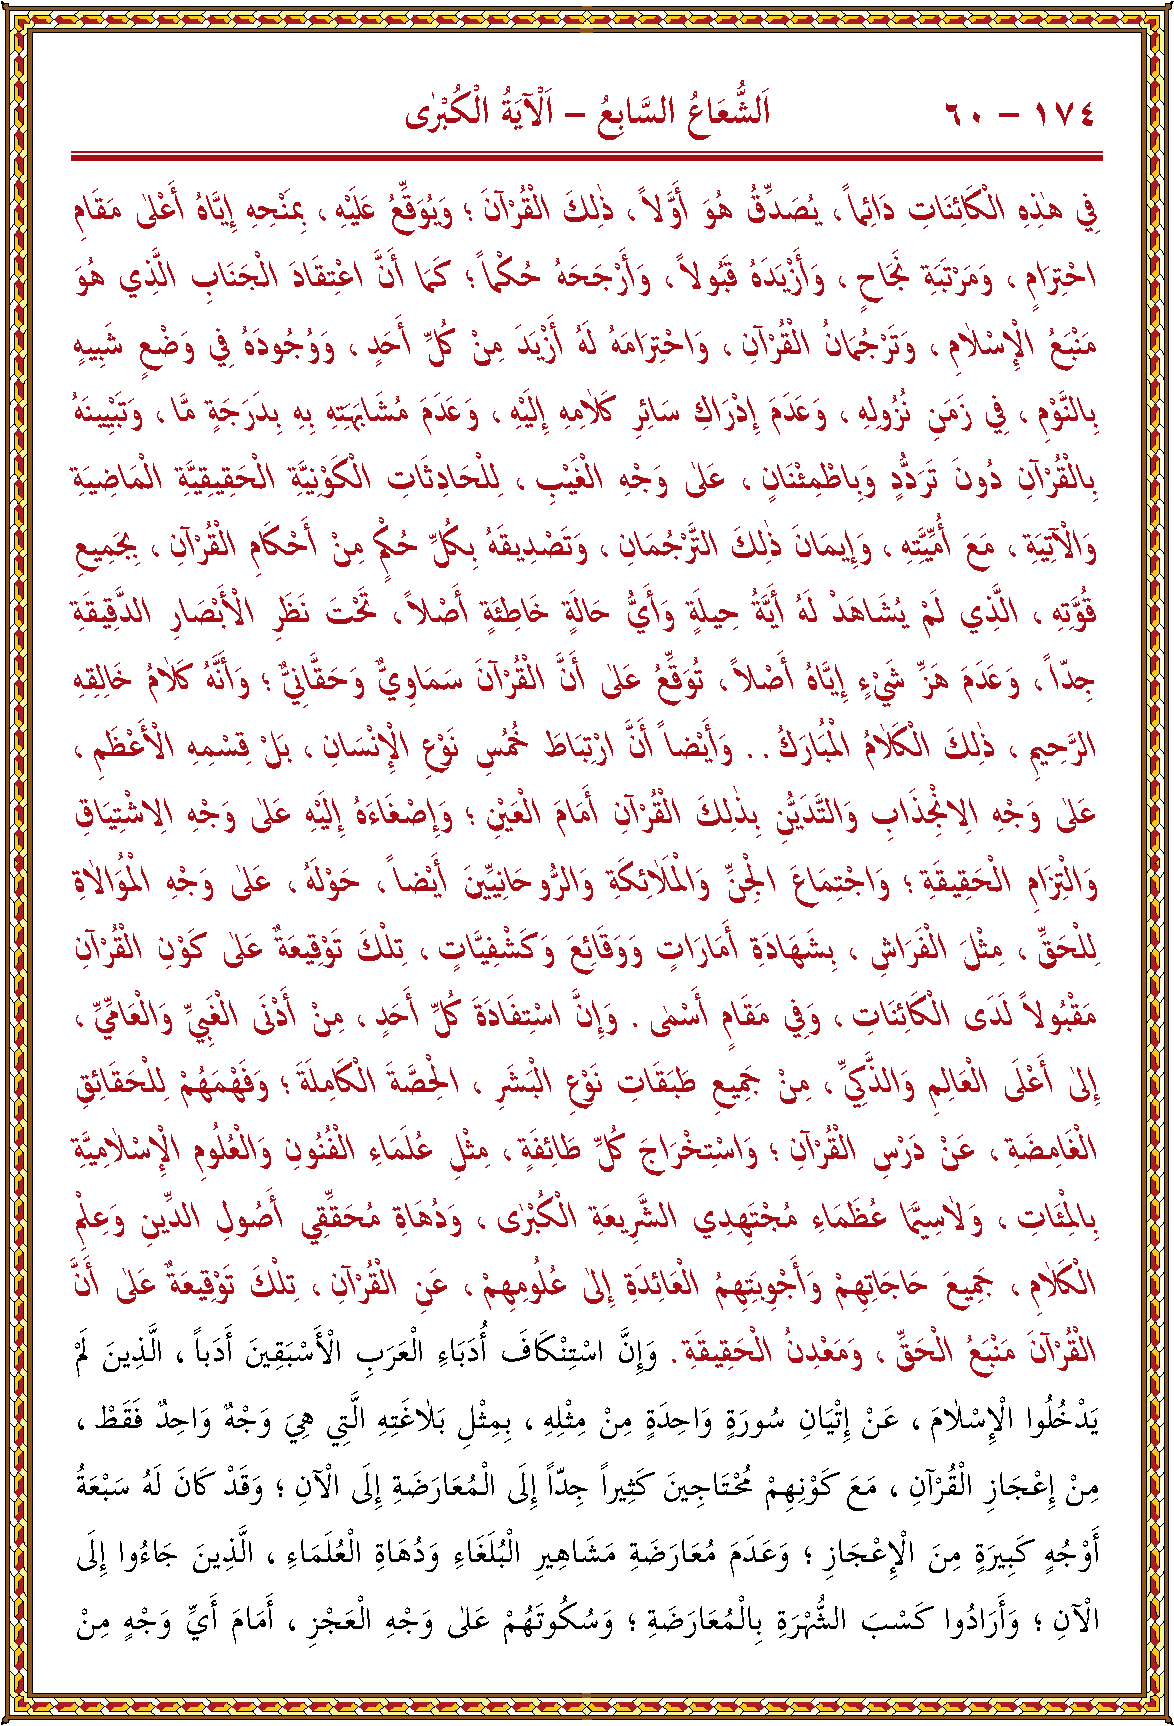 ١٧٤ – ٦٠
اَلشُّعَاعُ السَّابِعُ – اَلْآيَةُ الْكُبْرٰى
فِي هٰذِهِ الْكَائِنَاتِ دَائِماً ، يُصَدِّقُ هُوَ أَوَّلاً ، ذٰلِكَ الْقُرْآنَ ؛ وَيُوَقِّعُ عَلَيْهِ ، بِمَنْحِهِ إِيَّاهُ أَعْلٰى مَقَامِ
احْتِرَامٍ ، وَمَرْتَبَةِ نَجَاحٍ ، وَأَزْيَدَهُ قَبُولاً ، وَأَرْجَحَهُ حُكْماً ؛ كَمَا أَنَّ اعْتِقَادَ الْجَنَابِ الَّذِي هُوَ
مَنْبَعُ الْإِسْلَامِ ، وَتَرْجُمَانُ الْقُرْآنِ ، وَاحْتِرَامَهُ لَهُ أَزْيَدَ مِنْ كُلِّ أَحَدٍ ، وَوُجُودَهُ فِي وَضْعٍ شَبِيهٍ
بِالنَّوْمِ ، فِي زَمَنِ نُزُولِهِ ، وَعَدَمَ إِدْرَاكِ سَائِرِ كَلَامِهِ إِلَيْهِ ، وَعَدَمَ مُشَابَهَتِهِ بِهِ بِدَرَجَةٍ مَّا ، وَتَبْيِينَهُ
بِالْقُرْآنِ دُونَ تَرَدُّدٍ وَبِاطْمِئْنَانٍ ، عَلٰى وَجْهِ الْغَيْبِ ، لِلْحَادِثَاتِ الْكَوْنِيَّةِ الْحَقِيقِيَّةِ الْمَاضِيَةِ
وَالْآتِيَةِ ، مَعَ أُمِّيَّتِهِ ، وَإِيمَانَ ذٰلِكَ التَّرْجُمَانِ ، وَتَصْدِيقَهُ بِكُلِّ حُكْمٍ مِنْ أَحْكَامِ الْقُرْآنِ ، بِجَمِيعِ
قُوَّتِهِ ، الَّذِي لَمْ يُشَاهَدْ لَهُ أَيَّةُ حِيلَةٍ وَأَيُّ حَالَةٍ خَاطِئَةٍ أَصْلاً ، تَحْتَ نَظَرِ الْأَبْصَارِ الدَّقِيقَةِ
جِدّاً ، وَعَدَمَ هَزِّ شَيْءٍ إِيَّاهُ أَصْلاً ، تُوَقِّعُ عَلٰى أَنَّ الْقُرْآنَ سَمَاوِيٌّ وَحَقَّانِيٌّ ؛ وَأَنَّهُ كَلَامُ خَالِقِهِ
الرَّحِيمِ ، ذٰلِكَ الْكَلَامُ الْمُبَارَكُ . . وَأَيْضاً أَنَّ ارْتِبَاطَ خُمُسِ نَوْعِ الْإِنْسَانِ ، بَلْ قِسْمِهِ الْأَعْظَمِ ،
عَلٰى وَجْهِ الِانْجِذَابِ وَالتَّدَيُّنِ بِذٰلِكَ الْقُرْآنِ أَمَامَ الْعَيْنِ ؛ وَإِصْغَاءَهُ إِلَيْهِ عَلٰى وَجْهِ الِاشْتِيَاقِ
وَالْتِزَامِ الْحَقِيقَةِ ؛ وَاجْتِمَاعَ الْجِنِّ وَالْمَلَائِكَةِ وَالرُّوحَانِيِّينَ أَيْضاً ، حَوْلَهُ ، عَلٰى وَجْهِ الْمُوَالَاةِ
لِلْحَقِّ ، مِثْلَ الْفَرَاشِ ، بِشَهَادَةِ أَمَارَاتٍ وَوَقَائِعَ وَكَشْفِيَّاتٍ ، تِلْكَ تَوْقِيعَةٌ عَلٰى كَوْنِ الْقُرْآنِ
مَقْبُولاً لَدَى الْكَائِنَاتِ ، وَفِي مَقَامٍ أَسْمٰى . وَإِنَّ اسْتِفَادَةَ كُلِّ أَحَدٍ ، مِنْ أَدْنَى الْغَبِيِّ وَالْعَامِّيِّ ،
إِلٰى أَعْلَى الْعَالِمِ وَالذَّكِيِّ ، مِنْ جَمِيعِ طَبَقَاتِ نَوْعِ الْبَشَرِ ، الْحِصَّةَ الْكَامِلَةَ ؛ وَفَهْمَهُمْ لِلْحَقَائِقِ
الْغَامِضَةِ ، عَنْ دَرْسِ الْقُرْآنِ ؛ وَاسْتِخْرَاجَ كُلِّ طَائِفَةٍ ، مِثْلِ عُلَمَاءِ الْفُنُونِ وَالْعُلُومِ الْإِسْلَامِيَّةِ
بِالْمِئَاتِ ، وَلَاسِيَّمَا عُظَمَاءِ مُجْتَهِدِي الشَّرِيعَةِ الْكُبْرٰى ، وَدُهَاةِ مُحَقِّقِي أُصُولِ الدِّينِ وَعِلْمِ
الْكَلَامِ ، جَمِيعَ حَاجَاتِهِمْ وَأَجْوِبَتِهِمُ الْعَائِدَةِ إِلٰى عُلُومِهِمْ ، عَنِ الْقُرْآنِ ، تِلْكَ تَوْقِيعَةٌ عَلٰى أَنَّ
الْقُرْآنَ مَنْبَعُ الْحَقِّ ، وَمَعْدِنُ الْحَقِيقَةِ . وَإِنَّ اسْتِنْكَافَ أُدَبَاءِ الْعَرَبِ الْأَسْبَقِينَ أَدَباً ، الَّذِينَ لَمْ
يَدْخُلُوا الْإِسْلَامَ ، عَنْ إِتْيَانِ سُورَةٍ وَاحِدَةٍ مِنْ مِثْلِهِ ، بِمِثْلِ بَلَاغَتِهِ الَّتِي هِيَ وَجْهٌ وَاحِدٌ فَقَطْ ،
مِنْ إِعْجَازِ الْقُرْآنِ ، مَعَ كَوْنِهِمْ مُحْتَاجِينَ كَثِيراً جِدّاً إِلَى الْمُعَارَضَةِ إِلَى الْآنِ ؛ وَقَدْ كَانَ لَهُ سَبْعَةُ
أَوْجُهٍ كَبِيرَةٍ مِنَ الْإِعْجَازِ ؛ وَعَدَمَ مُعَارَضَةِ مَشَاهِيرِ الْبُلَغَاءِ وَدُهَاةِ الْعُلَمَاءِ ، الَّذِينَ جَاءُوا إِلَى
الْآنِ ؛ وَأَرَادُوا كَسْبَ الشُّهْرَةِ بِالْمُعَارَضَةِ ؛ وَسُكُوتَهُمْ عَلٰى وَجْهِ الْعَجْزِ ، أَمَامَ أَيِّ وَجْهٍ مِنْ